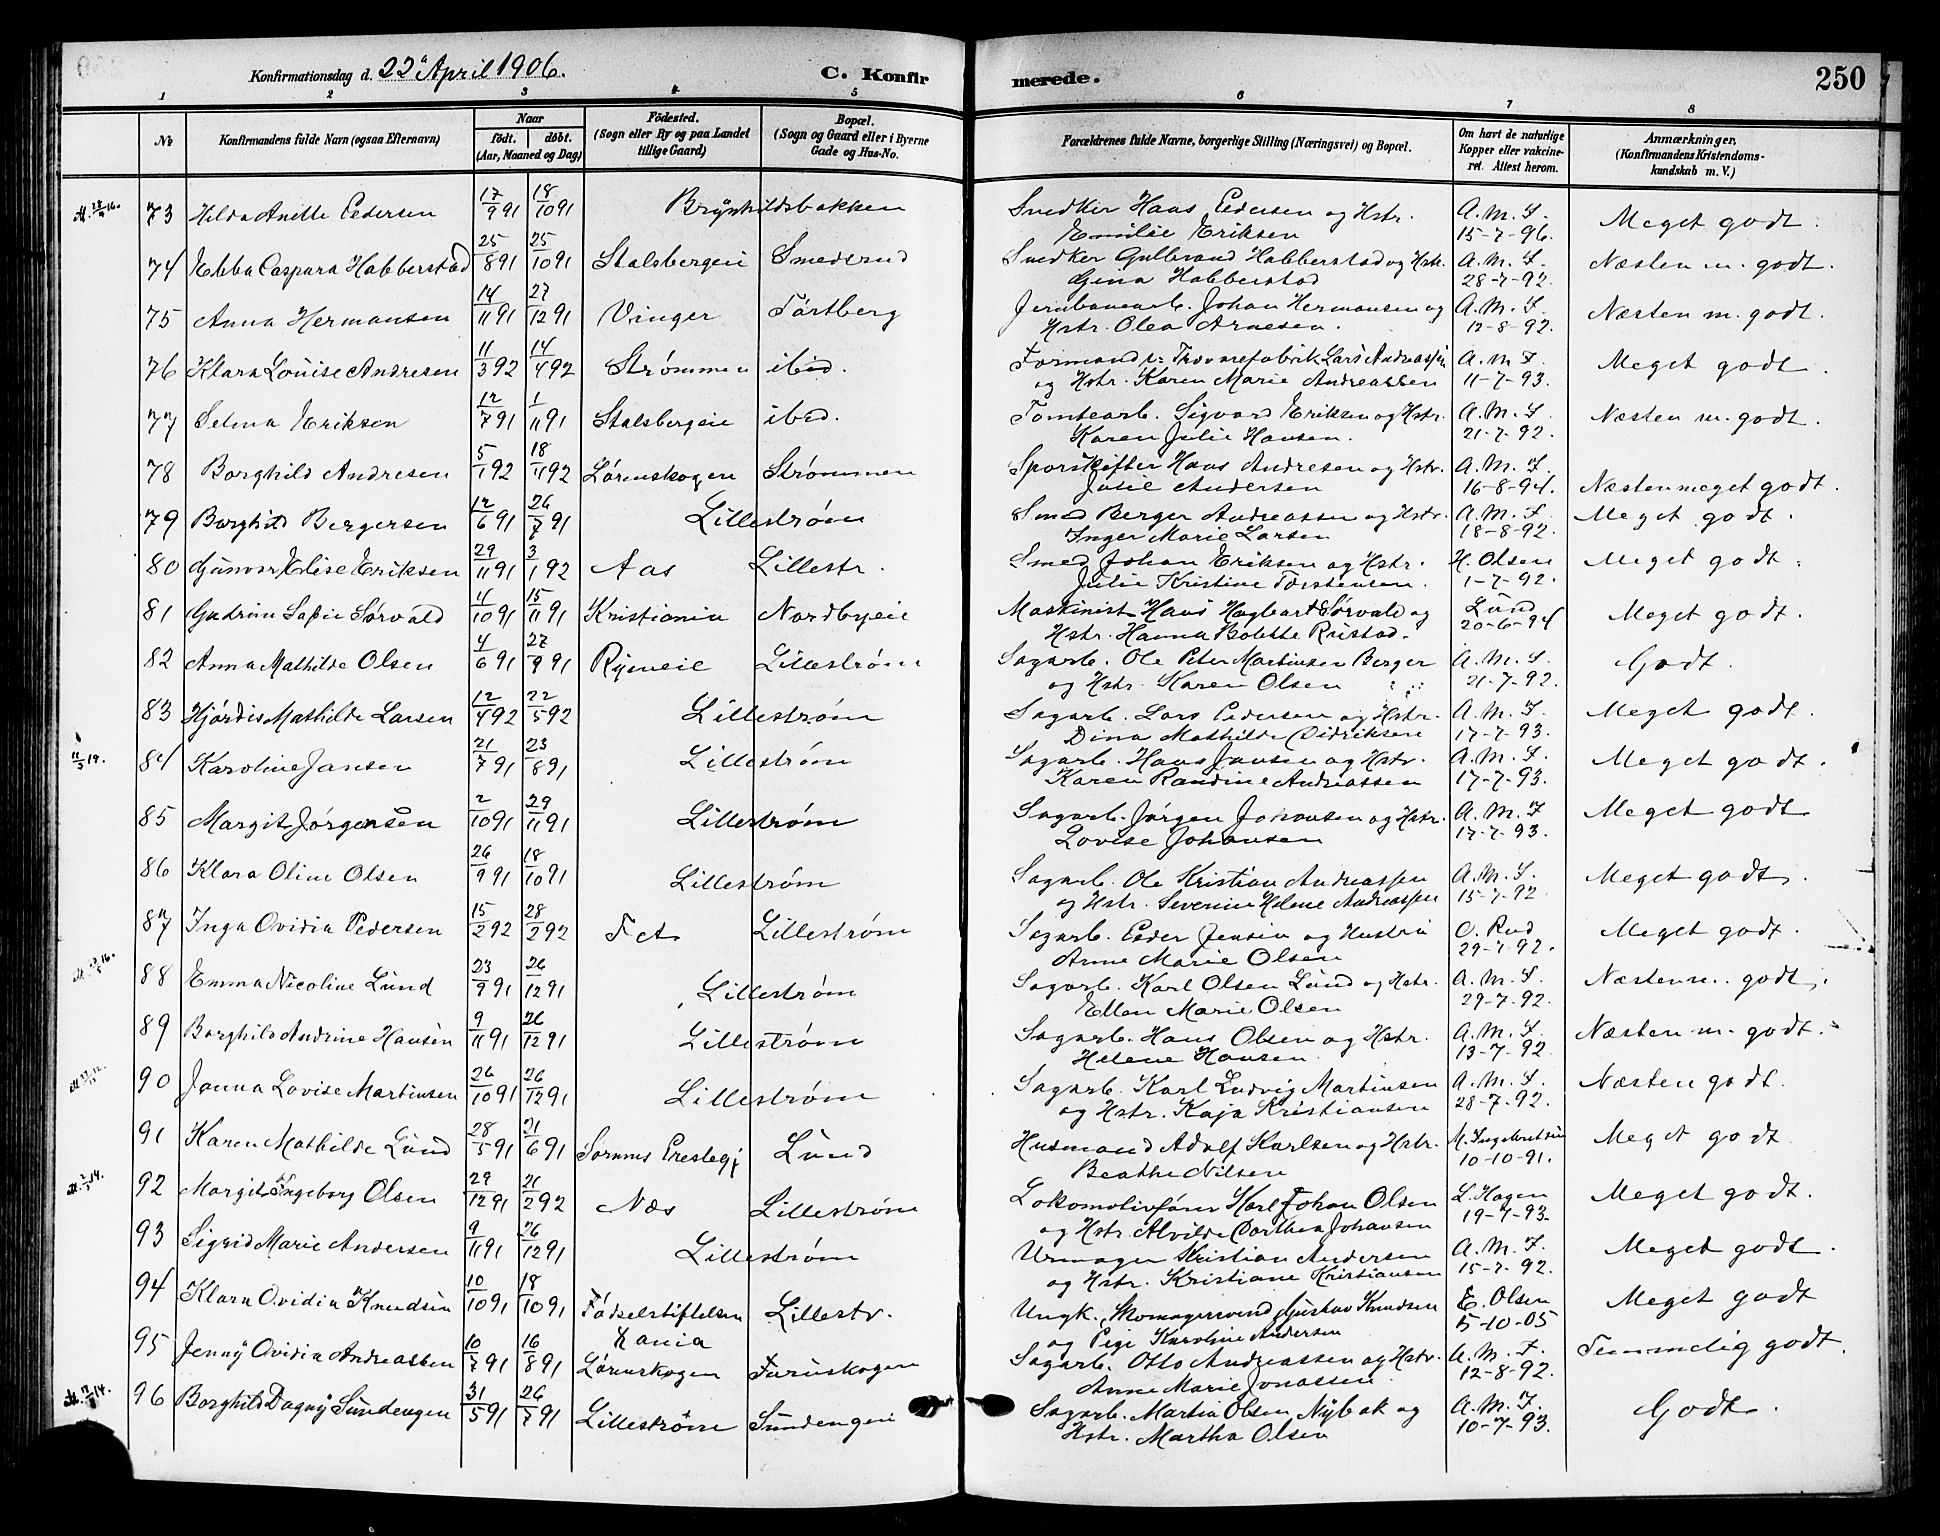 Konfirmationsdag d. 22de April 1906. C. Konfir merede. 250
1 2 3 4 5 6 7 8
No Konfirmandens fulde Navn (ogsaa Efternavn) Naar født. døbt. (Aar, Maaned og Dag) Födested. (Sogn eller By og paa Landet tillige Gaard) Bopæl. (Sogn og Gaard eller i Byerne Gade og Hus-No. Forældrenes fulde Navne, borgerlige Stilling (Næringsvei) og Bopæl. Om havt de naturlige Kopper eller vakcineret. Attest herom. Anmærkninger. (Konfirmandens Kristendomskundskab m. V.)
73 Hilda Anette Pedersen 17/9 91 18/10 91 Brynhildsbakken Snedker Hans Pedersen og Hstr. A. M. F. Meget godt.
Emilie Eriksen 15-7-96.
74 Ebba Caspara Habberstad 25/8 91 25/10 91 Stalsbergeie Smedsrud Snedker Gulbrand Habberstad og Hstr. A. M. F. Næsten m. godt.
Gina Habberstad 28-7-92.
75 Anna Hermansen 14/11 91 27/12 91 Vinger Tårtberg Jernbanearb. Johan Hermansen og A. M. F. Næsten m. godt.
Hstr. Olea Arnesen. 12-8-92.
76 Klara Louise Andresen 11/3 92 14/4 92 Strømmen ibid. Formand i Lars Andreassen A. M. F. Meget godt.
og Hstr. Karen Marie Andreassen 11-7-93.
77 Selma Eriksen 12/7 91 1/11 91 Stalsbergeie ibid. Tomtearb. Sigvard Eriksen og Hstr. A. M. F. Næsten m. godt.
Karen Julie Hansen. 21-7-92.
78 Borghild Andresen 5/1 92 18/11 92 Lørenskogen Strømmen Sporskifter Hans Andresen og Hstr. A. M. F. Næsten meget godt.
Julie Andersen 16-8-94.
79 Borghild Bergersen 12/6 91 26/7 91 Lillestrøm Smed Berger Andreassen og Hstr. A. M. F. Meget godt.
Inger Marie Larsen 18-8-92.
80 Gunvor Elise Eriksen 29/11 91 3/1 92 Aas Lillestr. Smed Johan Eriksen og Hstr. H. Olsen Meget godt.
Julie Kristine Torstensen. 1-7-92.
81 Gudrun Sofie Sørvald 4/10 91 15/11 91 Kristiania Nordbyeie Maskinist Hans Hagbart Sørvald og Lund Meget godt.
Hstr. Hanna Bolette Rustad. 20-6-94
82 Anna Mathilde Olsen 4/6 91 27/9 91 Ryeneie Lillestrøm Sagarb. Ole Peter Martinsen Berger A. M. F. Godt.
og Hstr. Karen Olsen 21-7-92.
83 Hjördis Mathilde Larsen 12/4 92 22/5 92 Lillestrøm Sagarb. Lars Pedersen og Hstr. A. M. F. Meget godt.
Dina Mathilde Didriksen 17-7-93.
84 Karoline Jansen 21/7 91 23/8 91 Lillestrøm Sagarb. Hans Jansen og Hstr. A. M. F. Meget godt.
Karen Randine Andreassen 17-7-93.
85 Margit Jørgensen 2/10 91 29/11 91 Lillestrøm Sagarb. Jørgen Johansen og Hstr. A. M. F Meget godt
Lovise Johansen 17-7-93.
86 Klara Oline Olsen 26/9 91 18/10 91 Lillestrøm Sagarb. Ole Kristian Andreassen A. M. F. Meget godt.
og Hstr. Severine Helene Andreassen 15-7-92.
87 Inga Ovidia Pedersen 15/2 92 28/2 92 Fet Lillestrøm Sagarb. Peder Jensen og Hustru O. Rud Meget godt.
Anne Marie Olsen 29-7-92.
88 Emma Nicoline Lund 23/9 91 26/12 91 Lillestrøm Sagarb. Karl Olsen Lund og Hstr. A. M. F. Næsten m. godt.
Ellen Marie Olsen 29-7-92.
89 Borghild Andrine Hansen 9/11 91 26/12 91 Lillestrøm Sagarb. Hans Olsen og Hstr. A. M. F. Næsten m. godt.
Helene Hansen. 13-7-92.
90 Janna Lovise Martinsen 26/10 91 26/12 91 Lillestrøm Sagarb. Karl Ludvig Martinsen A. M. F. Næsten godt.
og Hstr. Kaja Kristiansen 28-7-92.
91 Karen Mathilde Lund 28/5 91 21/6 91 Sørums Prestegj Lund Husmand Adolf Karlsen og Hstr. Meget godt
Beathe Nilsen 10-10-91.
92 Margit Ingeborg Olsen 29/12 91 21/2 92 Næs Lillestrøm Lokomotivfører Karl Johan Olsen L. Hagen Meget godt.
og Hstr. Alvilde Dorthea Johansen 19-7-93.
93 Sigrid Marie Andersen 9/11 91 26/12 91 Lillestrøm Urmager Kristian Andersen A. M. F. Meget godt.
og Hstr. Kristiane Kristiansen 15-7-92.
94 Klara Ovidia Knudsen 10/10 91 18/10 91 Fødselsstiftelsen Lillestr. Ungk. Skomagersvend Gustav Knudsen E. Olsen Meget godt
Kania og Pige Karoline Andersen 5-10-05
95 Jenny Ovidia Andreassen 10/7 91 16/8 91 Lørenskogen Furuskogen Sagarb. Otto Andreassen og Hstr. A. M. F. Temmelig godt.
Anne Marie Jonassen. 12-8-92.
96 Borghild Dagny Sundengen 31/5 91 26/7 91 Lillestrøm Sundengen Sagarb. Martin Olsen Nybak og A. M. F. Godt.
Hstr. Martha Olsen 10-7-93.